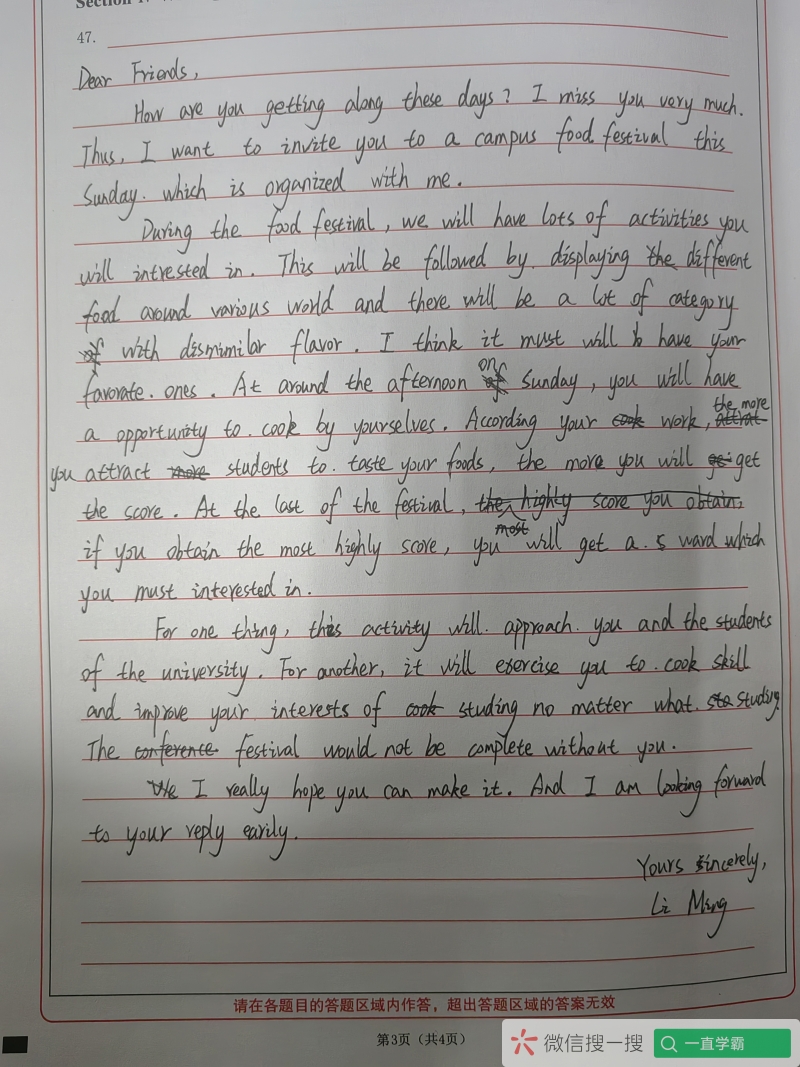 47.
Dear Friends,
How are you getting along these days? I miss you very much.
Thus, I want to invite you to a campus food festival this
Sunday. which is organized with me.
During the food festival, we will have lots of activities you
will intrested in. This will be followed by displaying the different
food around various world and there will be a lot of category
of with dismimilar flavor. I think it must will have your
favorate. ones. At around the afternoon on Sunday, you will have
a opportunity to cook by yourselves. According your cook work, the more
you attract more students to taste your foods, the more you will get
the score. At the last of the festival, the highly score you obtain,
most
if you obtain the most highly score, you will get a ward which
you must interested in.
For one thing, this activity will approach you and the students
of the university. For another, it will exercise you to cook skill
and improve your interests of cook studing no matter what studing
The conference festival would not be complete without you.
We I really hope you can make it. And I am looking forward
to your reply earily.
Yours sincerely,
Li Ming
请在各题目的答题区域内作答，超出答题区域的答案无效
第3页（共4页）
微信搜一搜
一直学霸